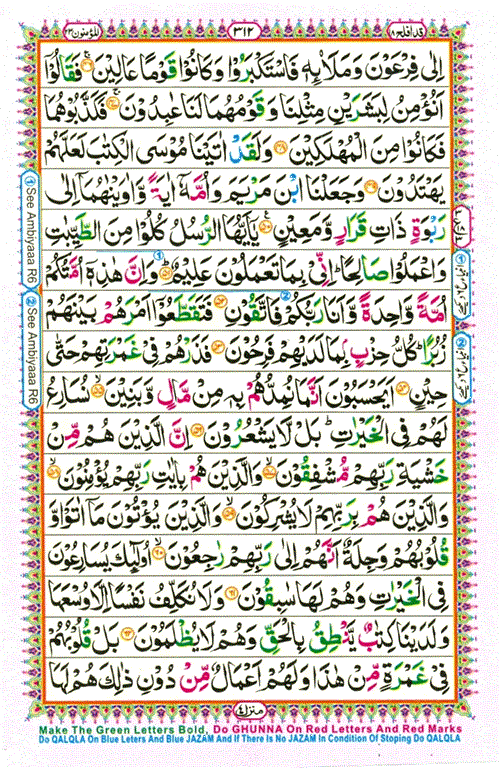 قد افلح ۱۸
۳۱۲
المؤمنون ۲۳
اِلٰى فِرْعَوْنَ وَمَلَا۟ىِٕهٖ فَاسْتَكْبَرُوْا وَكَانُوْا قَوْمًا عَالِيْنَ ۚ‏﴿۴۶﴾ فَقَالُوْۤا
اَنُؤْمِنُ لِبَشَرَيْنِ مِثْلِنَا وَقَوْمُهُمَا لَنَا عٰبِدُوْنَ ۚ‏﴿۴۷﴾ فَكَذَّبُوْهُمَا
فَكَانُوْا مِنَ الْمُهْلَكِيْنَ ﴿۴۸﴾ وَلَقَدْ اٰتَيْنَا مُوْسَى الْكِتٰبَ لَعَلَّهُمْ
يَهْتَدُوْنَ ﴿۴۹﴾ وَجَعَلْنَا ابْنَ مَرْيَمَ وَاُمَّهٗۤ اٰيَةً وَّاٰوَيْنٰهُمَاۤ اِلٰى
رَبْوَةٍ ذَاتِ قَرَارٍ وَّمَعِيْنٍ ﴿۵۰﴾ يٰۤاَيُّهَا الرُّسُلُ كُلُوْا مِنَ الطَّيِّبٰتِ
وَاعْمَلُوْا صَالِحًا ؕ اِنِّىْ بِمَا تَعْمَلُوْنَ عَلِيْمٌ ﴿۵۱﴾ وَاِنَّ هٰذِهٖۤ اُمَّتُكُمْ
اُمَّةً وَّاحِدَةً وَّاَنَا رَبُّكُمْ فَاتَّقُوْنِ ﴿۵۲﴾ فَتَقَطَّعُوْۤا اَمْرَهُمْ بَيْنَهُمْ
زُبُرًا ؕ كُلُّ حِزْبٍۭ بِمَا لَدَيْهِمْ فَرِحُوْنَ ﴿۵۳﴾ فَذَرْهُمْ فِىْ غَمْرَتِهِمْ حَتّٰى
حِيْنٍ ﴿۵۴﴾ اَيَحْسَبُوْنَ اَنَّمَا نُمِدُّهُمْ بِهٖ مِنْ مَّالٍ وَّبَنِيْنَ ۙ‏﴿۵۵﴾ نُسَارِعُ
لَهُمْ فِى الْخَيْرٰتِ ؕ بَلْ لَّا يَشْعُرُوْنَ ﴿۵۶﴾ اِنَّ الَّذِيْنَ هُمْ مِّنْ
خَشْيَةِ رَبِّهِمْ مُّشْفِقُوْنَ ۙ‏﴿۵۷﴾ وَالَّذِيْنَ هُمْ بِاٰيٰتِ رَبِّهِمْ يُؤْمِنُوْنَ ۙ‏﴿۵۸﴾
وَالَّذِيْنَ هُمْ بِرَبِّهِمْ لَا يُشْرِكُوْنَ ۙ‏﴿۵۹﴾ وَالَّذِيْنَ يُؤْتُوْنَ مَاۤ اٰتَوْا وَّ
قُلُوْبُهُمْ وَجِلَةٌ اَنَّهُمْ اِلٰى رَبِّهِمْ رٰجِعُوْنَ ۙ‏﴿۶۰﴾ اُولٰٓىِٕكَ يُسَارِعُوْنَ
فِى الْخَيْرٰتِ وَهُمْ لَهَا سٰبِقُوْنَ ﴿۶۱﴾ وَلَا نُكَلِّفُ نَفْسًا اِلَّا وُسْعَهَا
وَلَدَيْنَا كِتٰبٌ يَّنْطِقُ بِالْحَقِّ وَهُمْ لَا يُظْلَمُوْنَ ﴿۶۲﴾ بَلْ قُلُوْبُهُمْ
فِىْ غَمْرَةٍ مِّنْ هٰذَا وَلَهُمْ اَعْمَالٌ مِّنْ دُوْنِ ذٰلِكَ هُمْ لَهَا
منزل ۴
① See Ambiyaaa R6
② See Ambiyaaa R6
Make The Green Letters Bold, Do GHUNNA On Red Letters And Red Marks
Do QALQLA On Blue Leters And Blue JAZAM And If There Is No JAZAM In Condition Of Stoping Do QALQLA